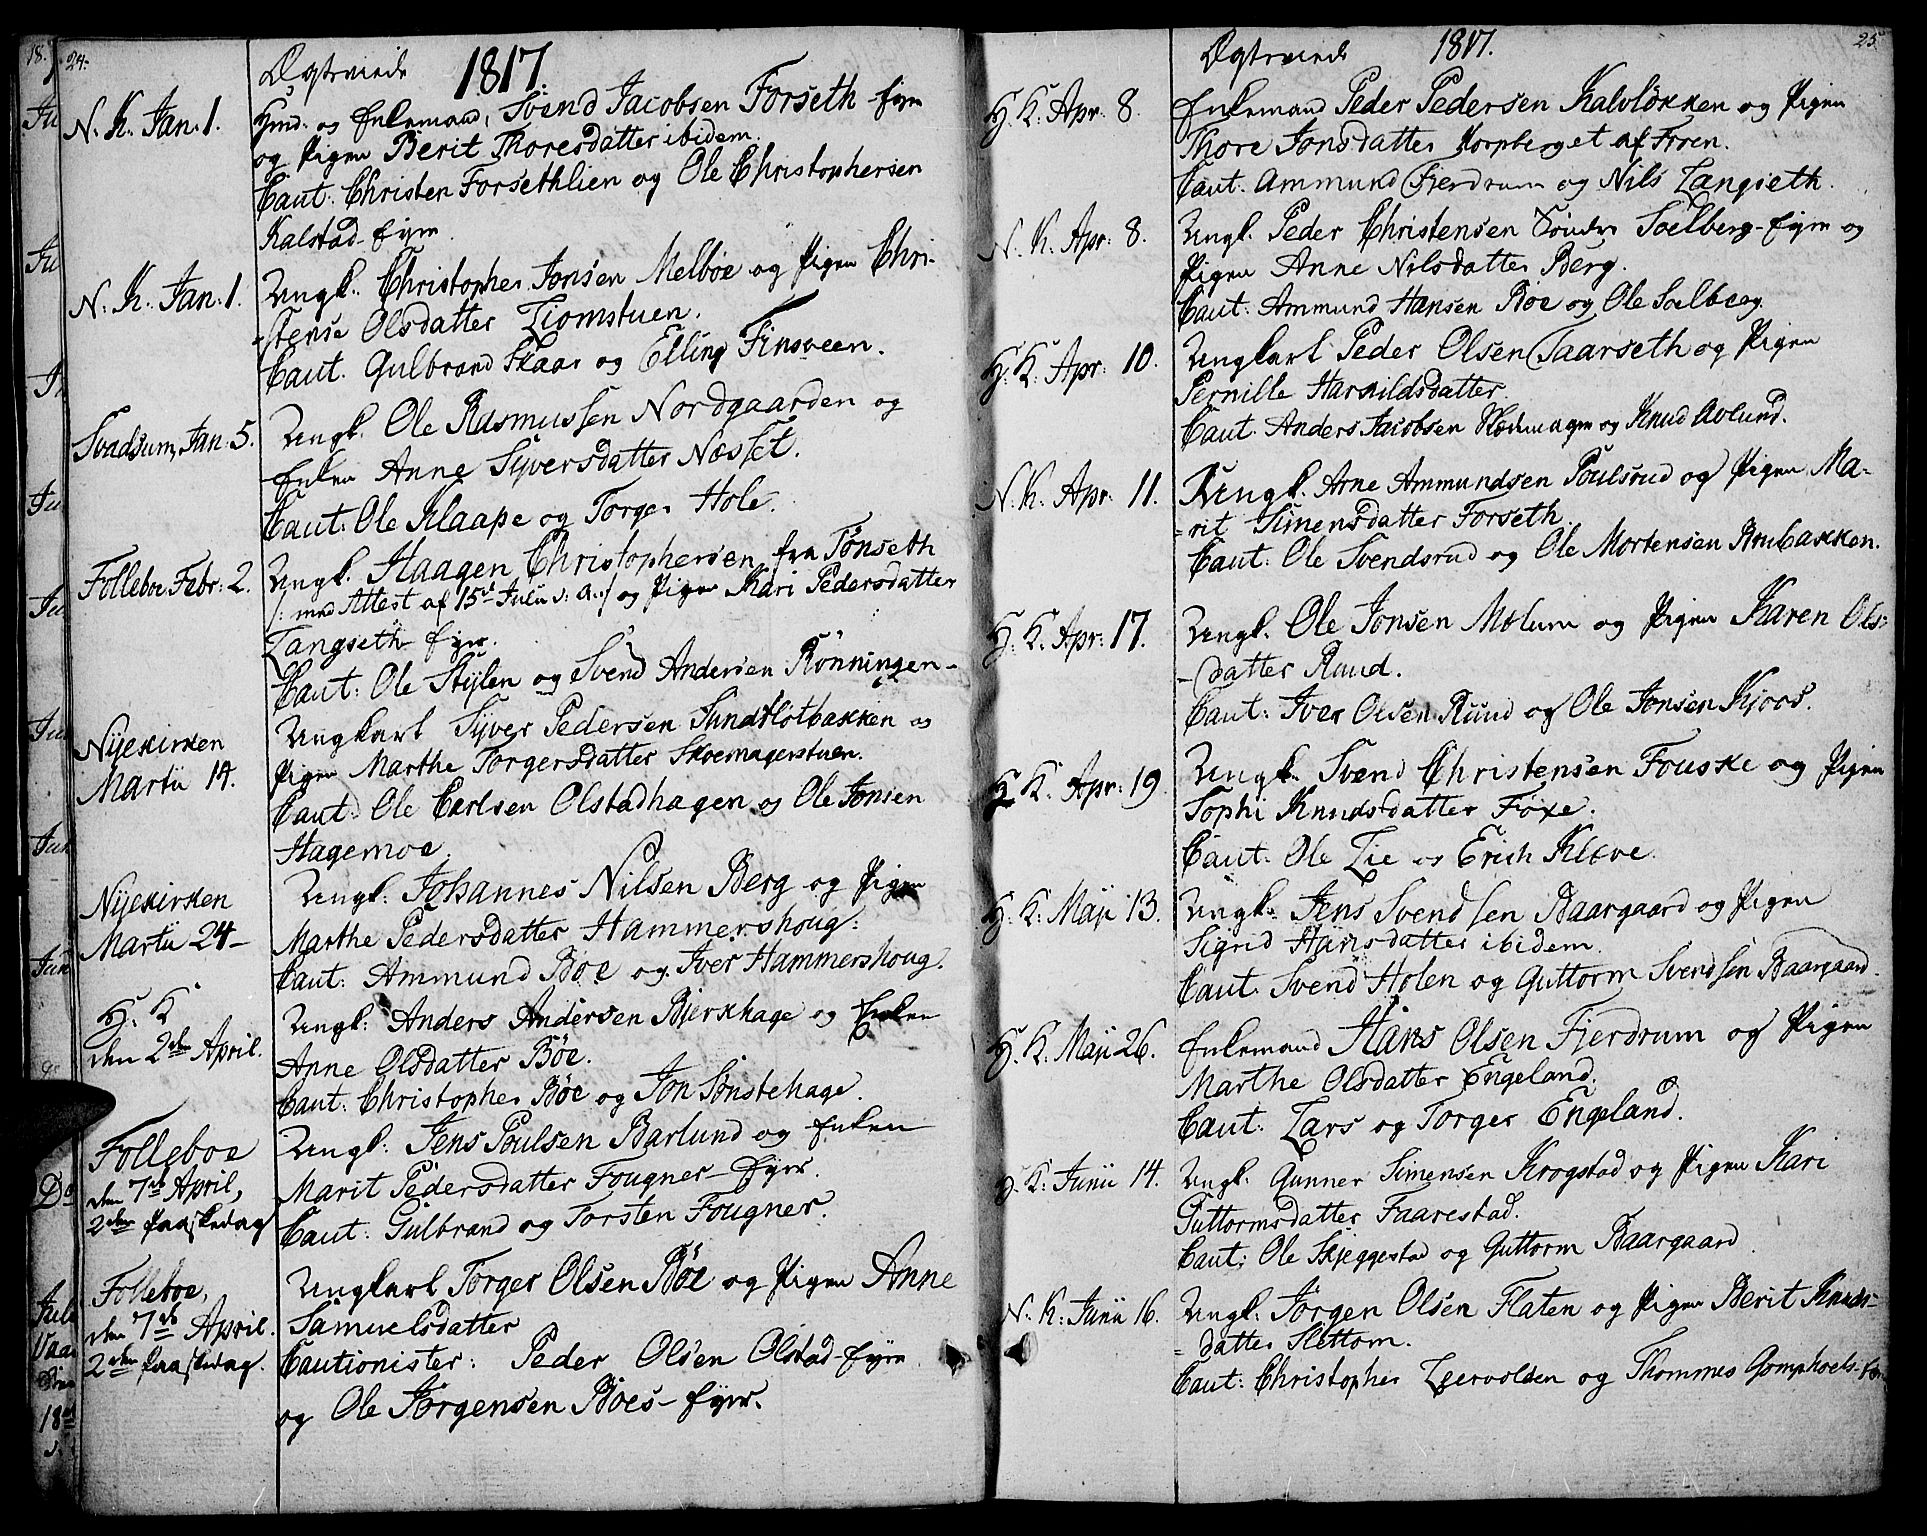 24.
Ægteviede 1817
N. K. Jan: 1.
Huusmd. og Enkemand, Svend Jacobsen Forseth-Eyer
og Pigen Berit Thoresdatter ibidem.
Caut: Christen Forsethlien og Ole Christophersen
Kalstad-Eyer
N: K. Jan: 1.
Ungk. Christopher Jonsen Melbøe og Pigen Chri-
-stense Olsdatter Liomstuen.
Caut. Gulbrand Skaar og Elling Finsveen.
Svadsum, Jan: 5.
Ungk. Ole Rasmussen Nordgaarden og
Enken Anne Syversdatter Næsset.
Caut: Ole Klaape og Torger Hole.
Folleboe Febr: 2.
Ungk. Haagen Christophersen fra Tønseth
/: med Attest af 15de Julii v: a:/ og Pigen Kari Pedersdatter
Langseth-Eyer.
Caut: Ole Stylen og Svend Andersen Rønningen-
Nyekirken
Martii 14.
Ungkarl Syver Pedersen Sundflotbakken og
Pigen Marthe Torgersdatter Skoemagerstuen.
Caut: Ole Carlsen Olstadhagen og Ole Jonsen
Hagemoe.
Nyekirken
Martii 24-
Ungk: Johannes Nilsen Berg og Pigen
Marthe Pedersdatter Hammershoug:
Caut: Ammund Bøe og Iver Hammershoug.
H. K
den 2den April.
Ungk: Anders Andersen Bierkhage og Enken
Anne Olsdatter Bøe.
Caut: Christopher Bøe og Jon Sønstehage.
Folleboe
den 7de April,
2den Paaskedag
Ungk: Jens Poulsen Barlund og Enken
Marit Pedersdatter Fougner-Eyer.
Caut: Gulbrand og Torsten Fougner.
Folleboe,
den 7de April.
2den Paaskedag.
Ungkarl Torger Olsen Bøe og Pigen Anne
Samuelsdatter
Cautionister: Peder Olsen Olstad-Eyer
og Ole Jørgensen Bøes-Eyer.
25.
Ægteviede 1817.
H. K. Apr: 8.
Enkemand Peder Pedersen Kalvløkken og Pigen
Thore Jonsdatter Korpberget af Froen.
Caut: Ammund Fierdrum og Nils Langseth.
N. K. Apr: 8.
Ungk. Peder Christensen Søndre Soelberg-Eyer og
Pigen Anne Nilsdatter Berg.
Caut: Ammund Hansen Bøe og Ole Soelberg.
H: K: Apr: 10.
Ungkarl Peder Olsen Taarseth og Pigen
Pernille Harkildsdatter
Caut. Anders Jacobsen og Knud Avlund.
N. K. Apr: 11.
Ungk. Arne Ammundsen Poulsrud og Pigen Ma-
-rit Simensdatter Forseth.
Caut: Ole Svendsrud og Ole Mortensen Brubakken.
H: K. Apr: 17.
Ungk. Ole Jonsen Molum og Pigen Karen Ols-
-datter Ruud.
Caut: Iver Olsen Ruud og Ole Jonsen Kjoos.
H. K. Apr: 19.
Ungk. Svend Christensen Fouske og Pigen
Sophi Knudsdatter Foxe.
Caut: Ole Lie og Erich Kløve.
H. K: Maji 13.
Ungk. Jens Svendsen Baargaard og Pigen
Sigrid Hansdatter ibidem.
Caut. Svend Holen og Guttorm Svendsen Baargaard.
H. K. Maji 26.
Enkemand Hans Olsen Fierdrum og Pigen
Marthe Olsdatter Engeland.
Caut: Lars og Torger Engeland.
H. K: Junii 14.
Ungk. Gunner Simensen Krogstad og Pigen Kari
Guttormsdatter Faarestad.
Caut: Ole Skjeggestad og Guttorm Baargaard.
N. K. Junii 16.
Ungk. Jørgen Olsen Flaten og Pigen Berit Knuds-
-datter Slettom.
Caut: Christopher Leervolden og Thommes